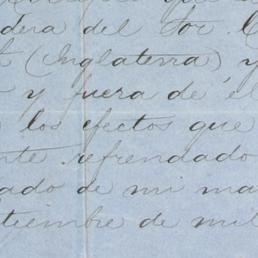 que
dera del Sor. C
(Inglaterra) y
y fuera de él
los efectos que
nte refrendado
ado de mi ma
tiembre de mil